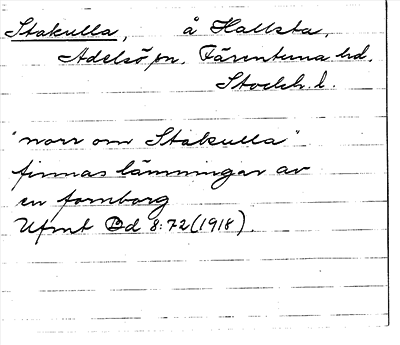 Stakulla, å Hallsta,
Adelsö sn. Färentuna hd.
Stockh. l.
"norr om Stakulla"
finnas lämningar av
en fornborg
Ufmt Bd 8:72 (1918).